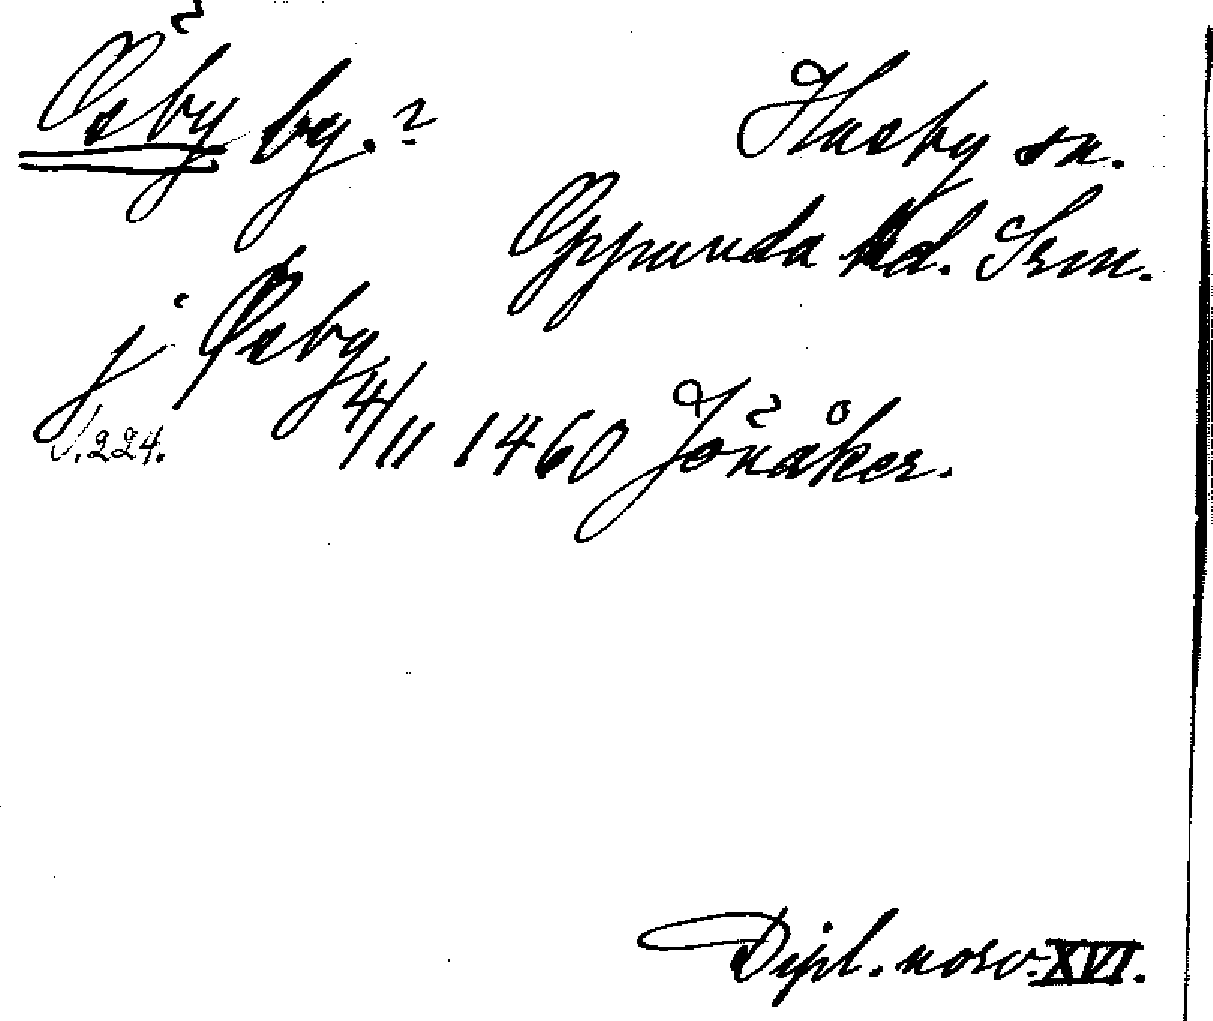 Ösby by.? Husby sn.
Oppunda hd. Srm.
j Øsby
4/11 1460 Jönåker.
s. 224.
Dipl. norv. XVI.